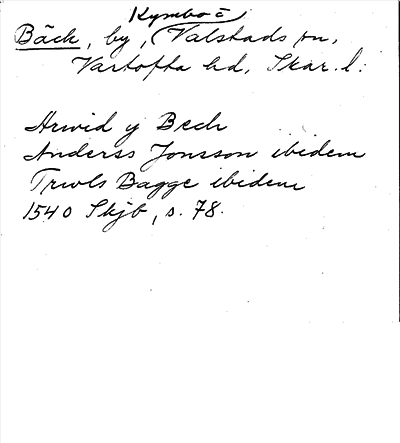 Kymbo =
Bäck, by, (Valstads sn,
Vartofta hd, Skar. l:
Arwid y Bech
Anderss Jonsson ibidem
Trwls Bagge ibidem
1540 Skjb, s. 78.